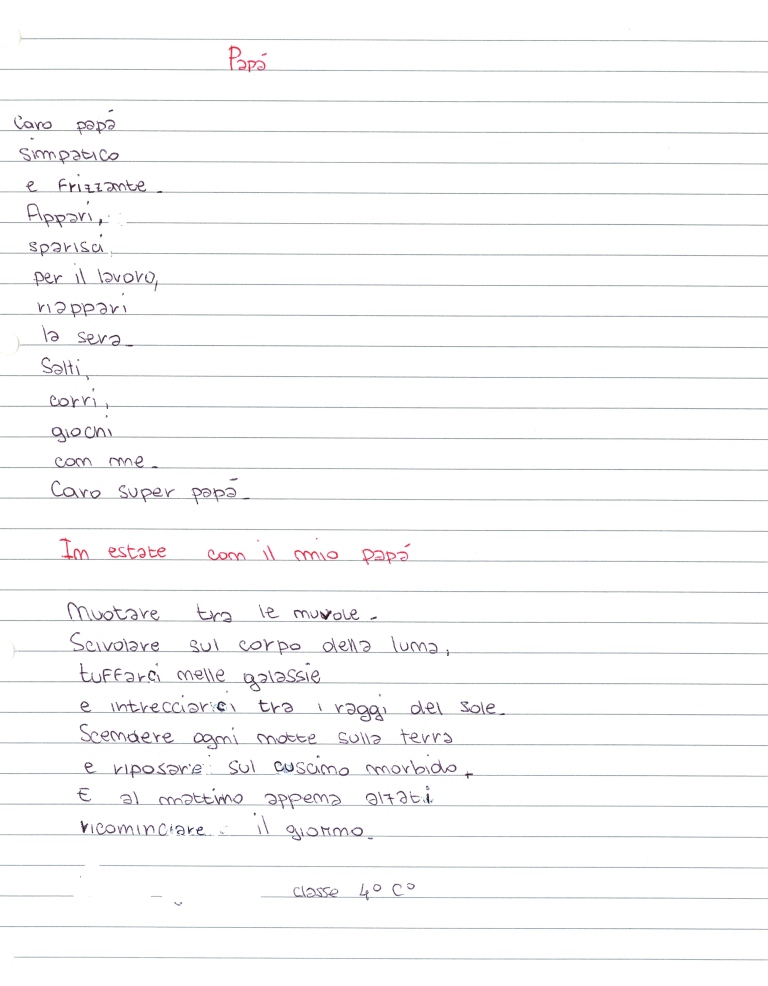 Papá
Caro papá
simpatico
e frizzante.
Appari,
sparisci,
per il lavoro,
riappari
la sera.
Salti,
corri,
giochi
con me.
Caro super papá.
In estate con il mio papá
Nuotare tra le nuvole.
Scivolare sul corpo della luna,
tuffarci nelle galassie
e intrecciarci tra i raggi del sole.
Scendere ogni notte sulla terra
e riposare sul cuscino morbido.
E al mattino appena alzati
ricominciare il giorno.
classe 4º Cº